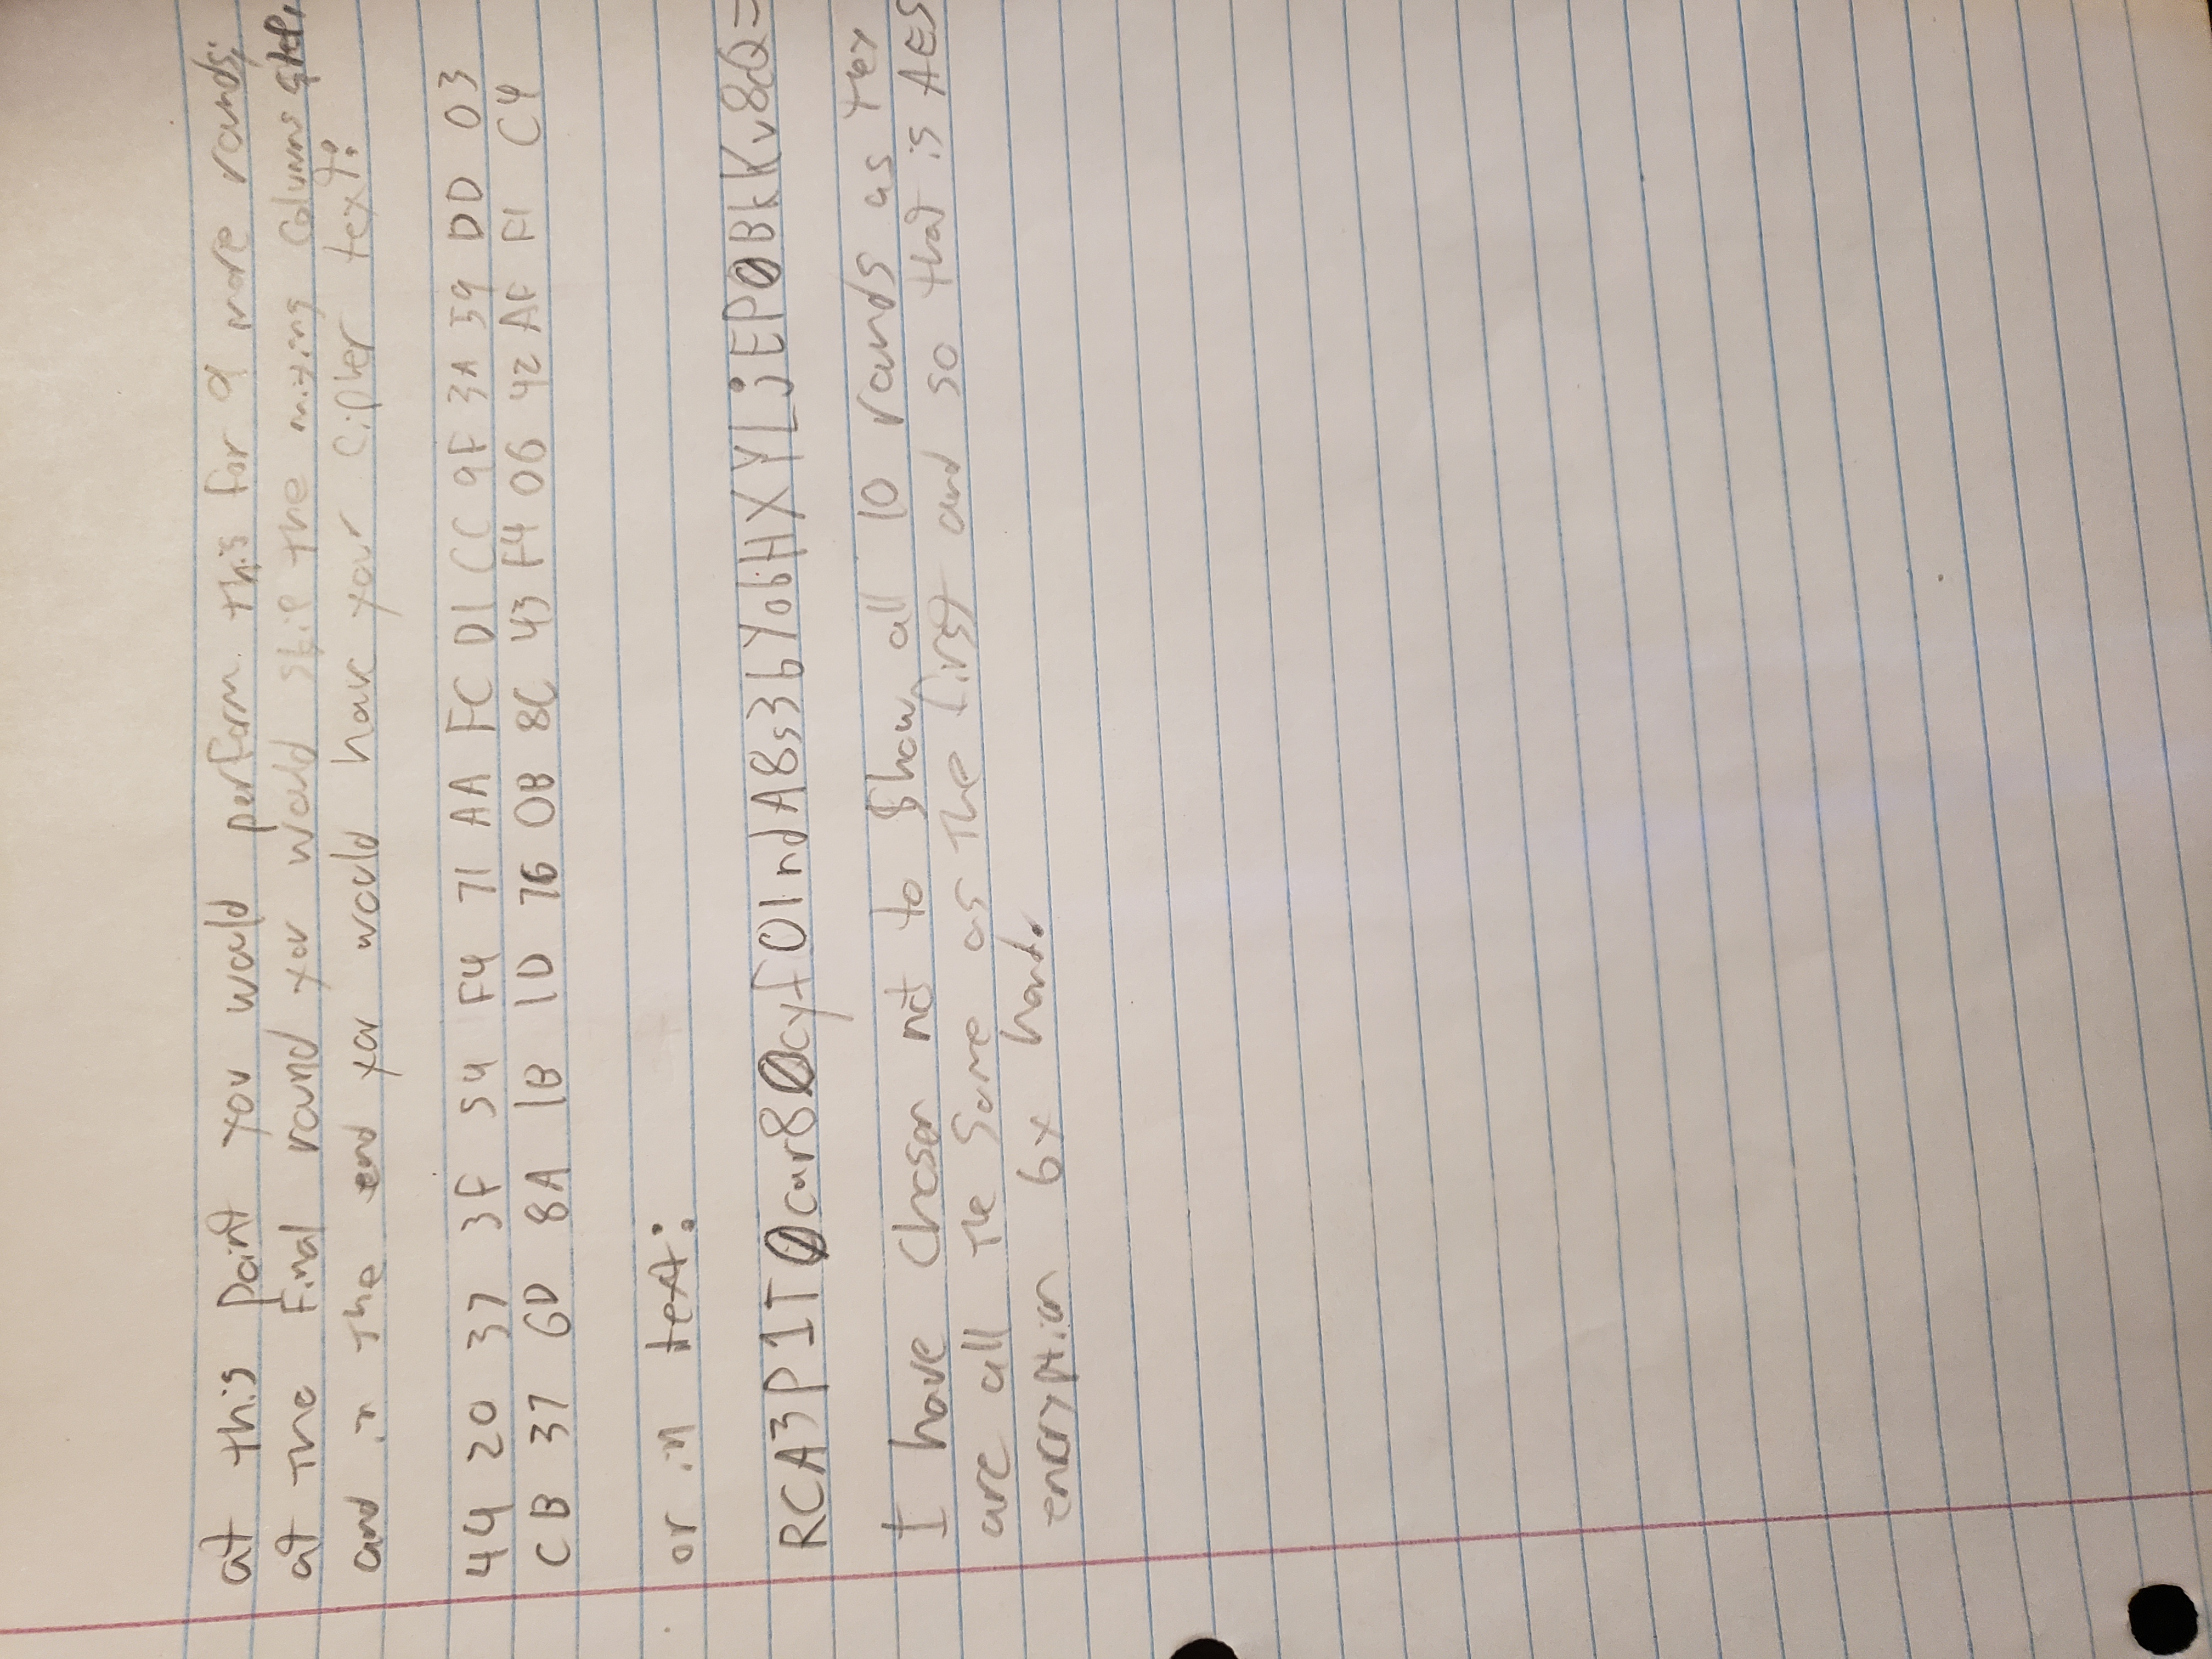 at this point you would perform this for 9 more rounds;
at the final round you would skip the mixing columns step,
and in the end you would have your cipher text:
44 20 37 3F 54 F4 71 AA FC D1 CC 9F 3A 59 DD 03
CB 37 6D 8A 1B 1D 76 0B 8C 43 F4 06 42 AF F1 C4
or in text:
RCA3P1T0car80cyfOlndA8s36Yo6HXYLjEP0BkKv8cQ=
I have chosen not to show all 10 rounds as they
are all the same as the first and so that is AES
encryption by hand.